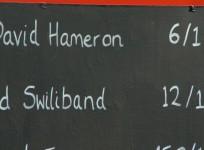 David Hameron 6/1
d Swiliband 12/1